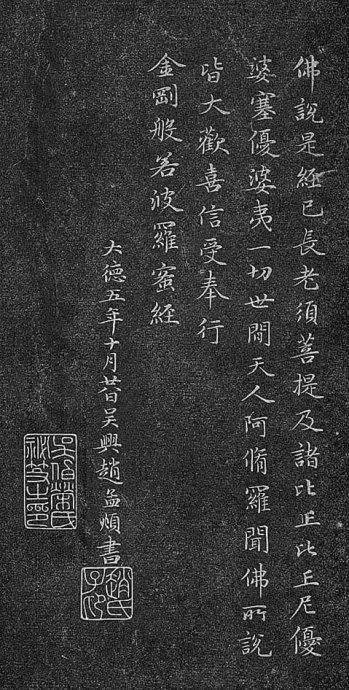 佛說是經已長老須菩提及諸比丘比丘尼優
婆塞優婆夷一切世間天人阿脩羅聞佛所說
皆大歡喜信受奉行
金剛般若波羅蜜經
大德五年十月廿日吳興趙孟頫書
趙氏子印
吳伯榮氏秘笈之印